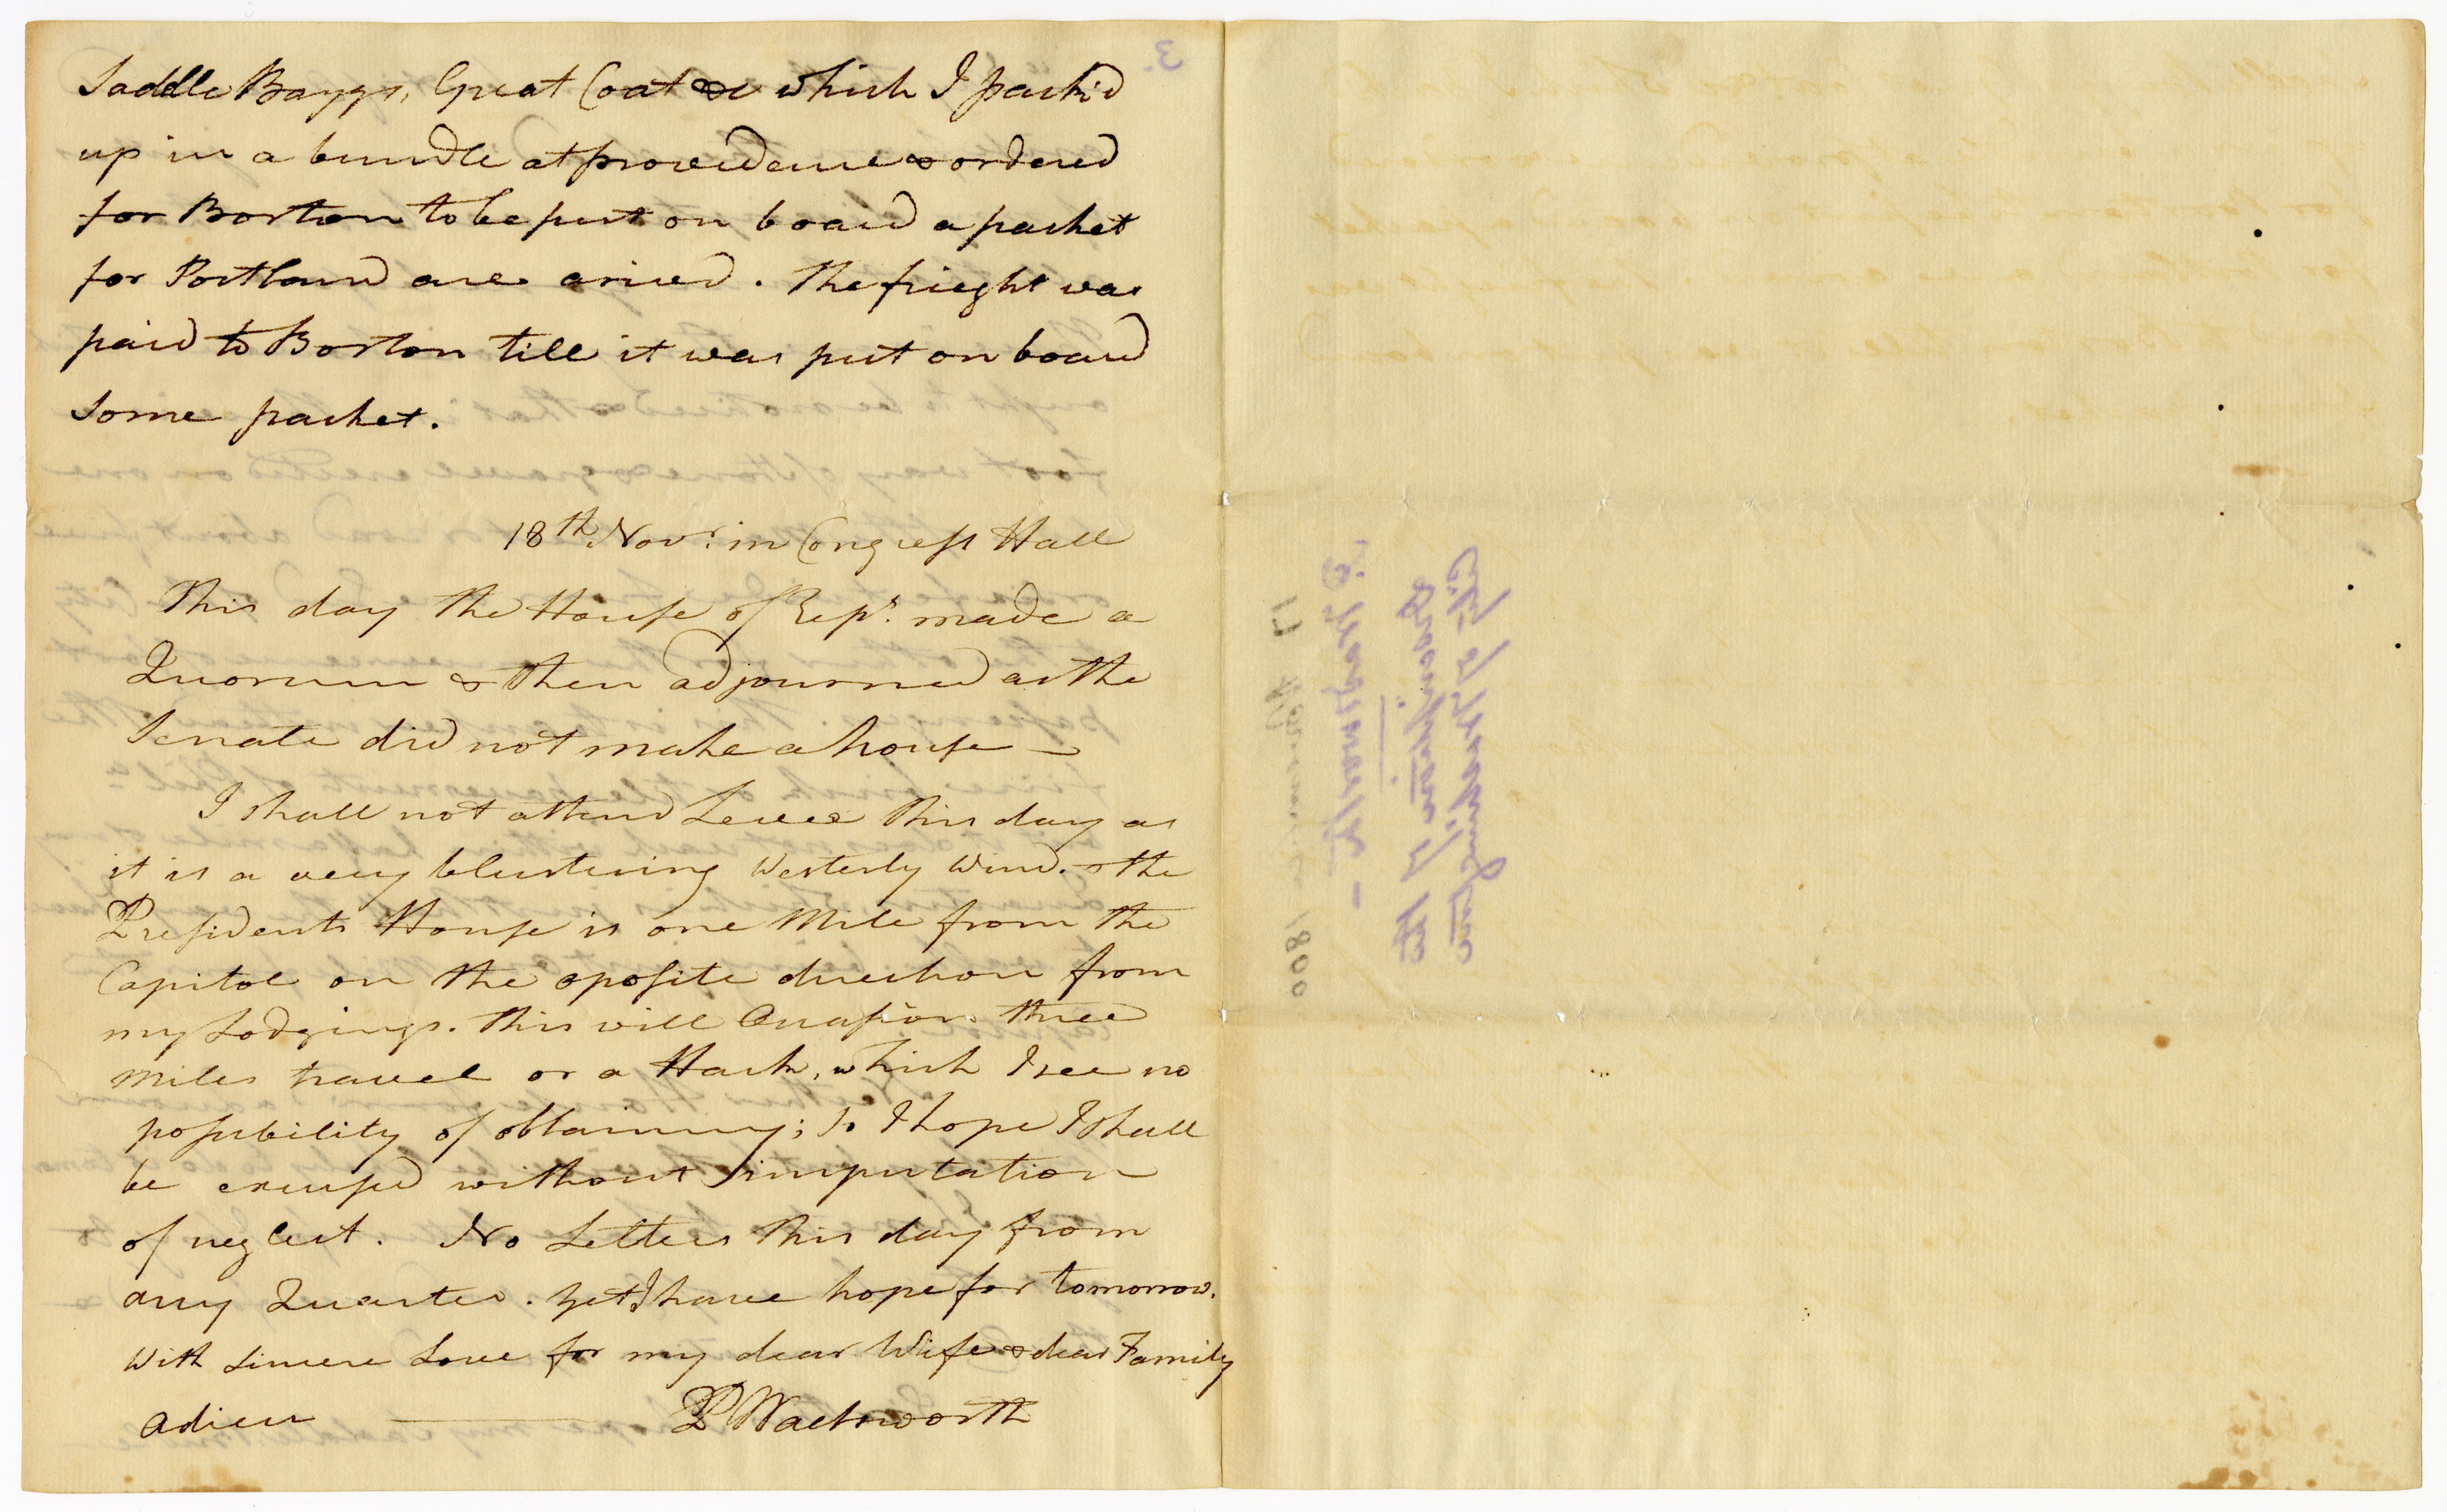 Saddle Baggs, Great Coat &c which I pack'd
up in a bundle at providence & ordered
for Boston to be put on board a packet
for Portland are arived. The frieght was
paid to Boston till it was put on board
some packet.
18th. Novr. in Congress Hall
This day the House of Reps. made a
Quorum & then adjourned as the
Senate did not make a house —
I shall not attend Levee this day as
it is a very blustering Westerly Wind. & the
Presidents House is one Mile from the
Capitol on the oposite direction from
my Lodgings. This will Occasion three
miles travel or a Hack, which I see no
possibility of obtaining; so I hope I shall
be excused without imputation
of neglect. No Letters this day from
any Quarter. yet I have hope for tomorrow.
With sincere Love for my dear Wife & dear Family
adieu — P Wadsworth
3.
17 November 1800